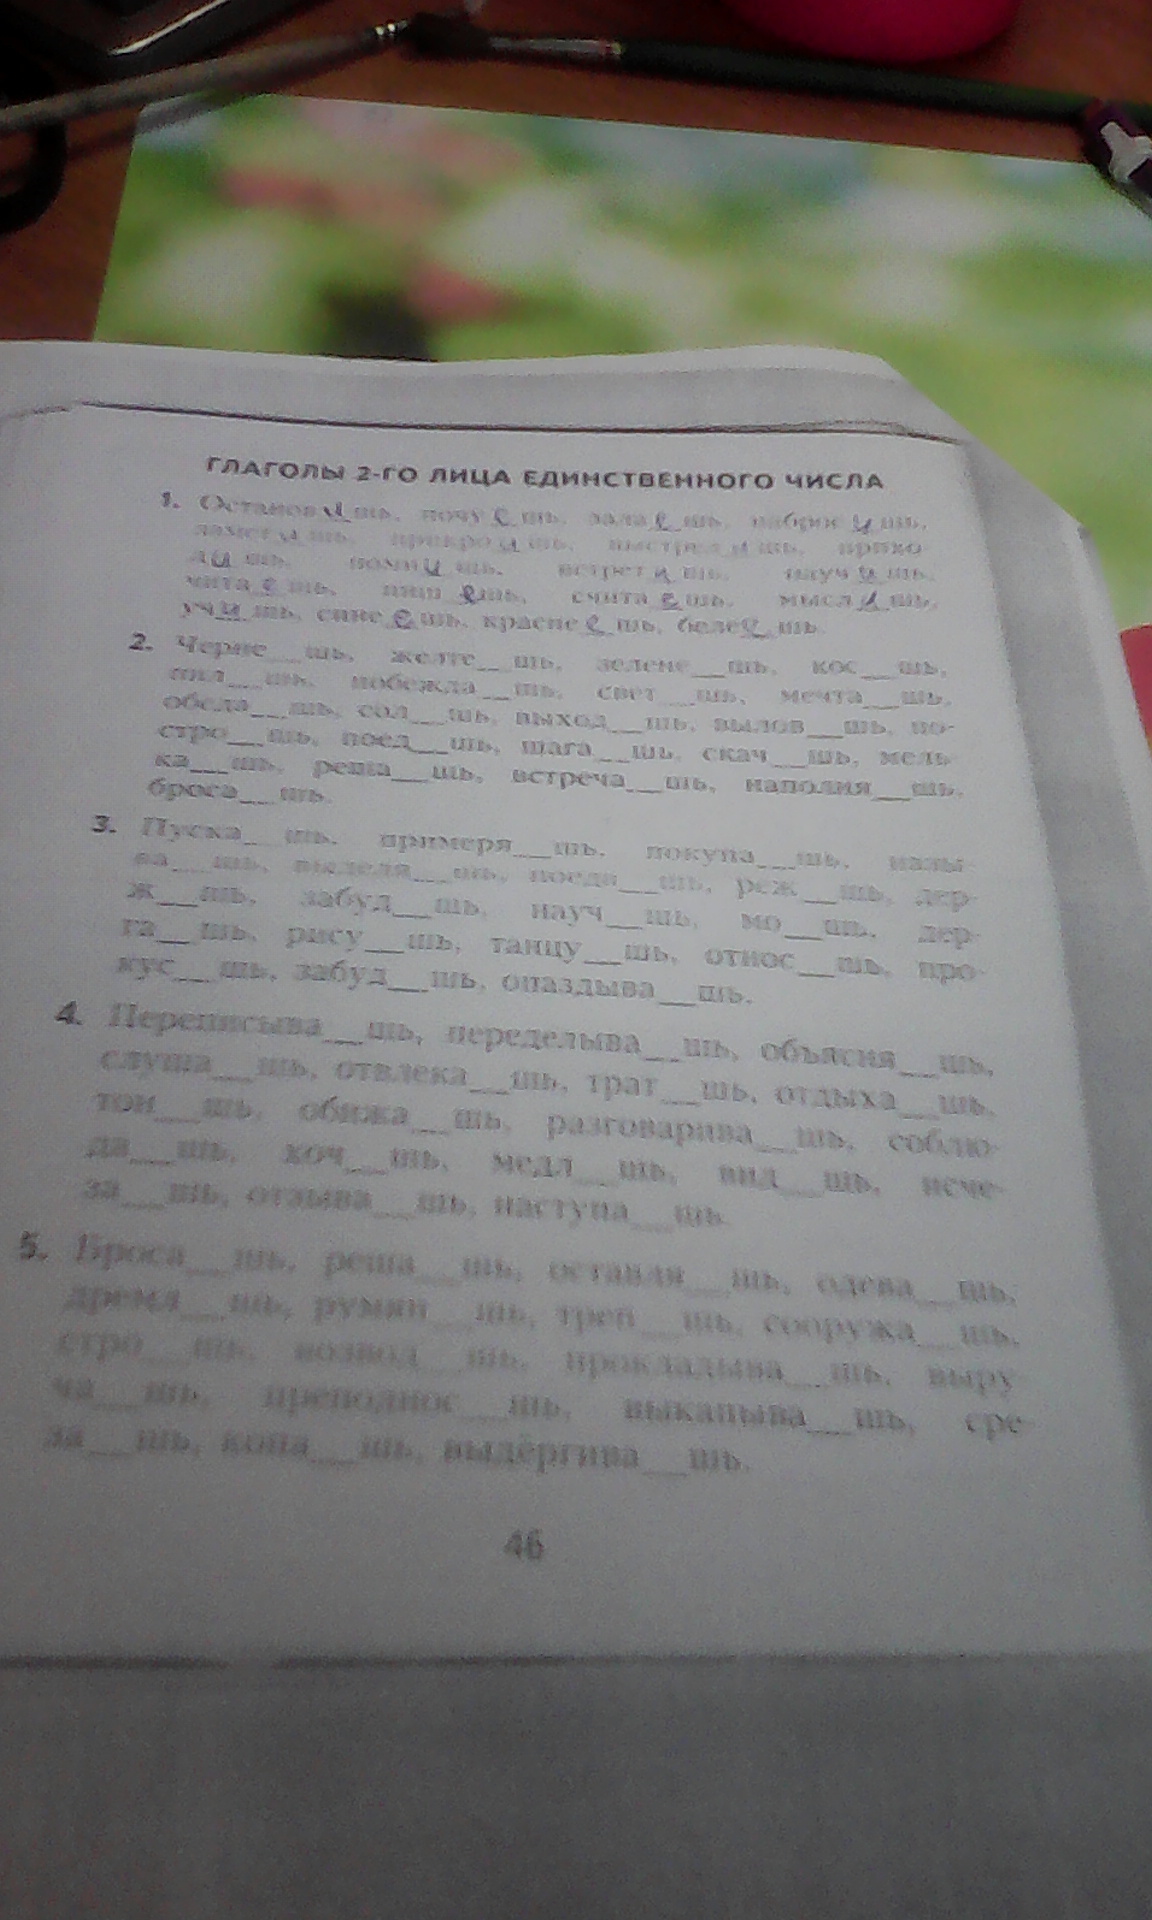 ГЛАГОЛЫ 2-ГО ЛИЦА ЕДИНСТВЕННОГО ЧИСЛА
1. Останов и шь, почу е шь, зала е шь, наброс и шь,
замет и шь, прикро и шь, выстрел и шь, прихо-
д и шь, помн и шь, встрет и шь, науч и шь,
чита е шь, пиш е шь, счита е шь, мысл и шь,
уч и шь, сине е шь, красне е шь, беле е шь.
2. Черне__шь, желте__шь, зелене__шь, кос__шь,
пил__шь, побежда__шь, свет__шь, мечта__шь,
обеда__шь, сол__шь, выход__шь, вылов__шь, по-
стро__шь, поед__шь, шага__шь, скач__шь, мель-
ка__шь, реша__шь, встреча__шь, наполня__шь,
броса__шь.
3. Пуска__шь, примеря__шь, покупа__шь, назы-
ва__шь, выделя__шь, поеда__шь, реж__шь, дер-
ж__шь, забуд__шь, науч__шь, мо__шь, дер-
га__шь, рису__шь, танцу__шь, относ__шь, про-
кус__шь, забуд__шь, опаздыва__шь.
4. Переписыва__шь, переделыва__шь, объясня__шь,
слуша__шь, отвлека__шь, трат__шь, отдыха__шь,
тон__шь, обижа__шь, разговарива__шь, соблю-
да__шь, хоч__шь, медл__шь, вид__шь, исче-
за__шь, отзыва__шь, наступа__шь.
5. Броса__шь, реша__шь, оставля__шь, одева__шь,
дремл__шь, румян__шь, треп__шь, сооружа__шь,
стро__шь, возвод__шь, прокладыва__шь, выру-
ча__шь, преподнос__шь, выкапыва__шь, сре-
за__шь, копа__шь, выдёргива__шь.
46